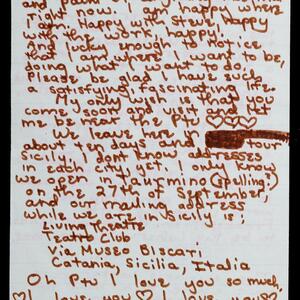 right now. I am happy here
I am. Happy with Steve, happy
with the work, happy.
And lucky enough to notice
that I am where I want to be,
doing what I want to do.
Please be glad I have such
a satisfying fascinating life.
My only wish is that you
come soon and visit and let
me be near the Ptu ♡♡♡
We leave here in
about ten days and tour
Sicily. I don't know addresses
in each city. I only know
we open in Taurmino (spelling?)
on the 27th of september,
and our mailing address
while we are in Sicily is:
Living Theatre
Teatro Club
Via Museo Biscari
Catania, Sicilia, Italia
Oh Ptu I love you so much,
♡ I love you ♡ I love you ♡